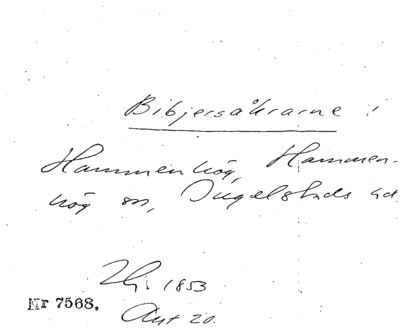 Bibjersåkrarne i
Hammenhög, Hammen-
hög sn, Ingelstads hd
1853
Nr 7568.
Akt 20.